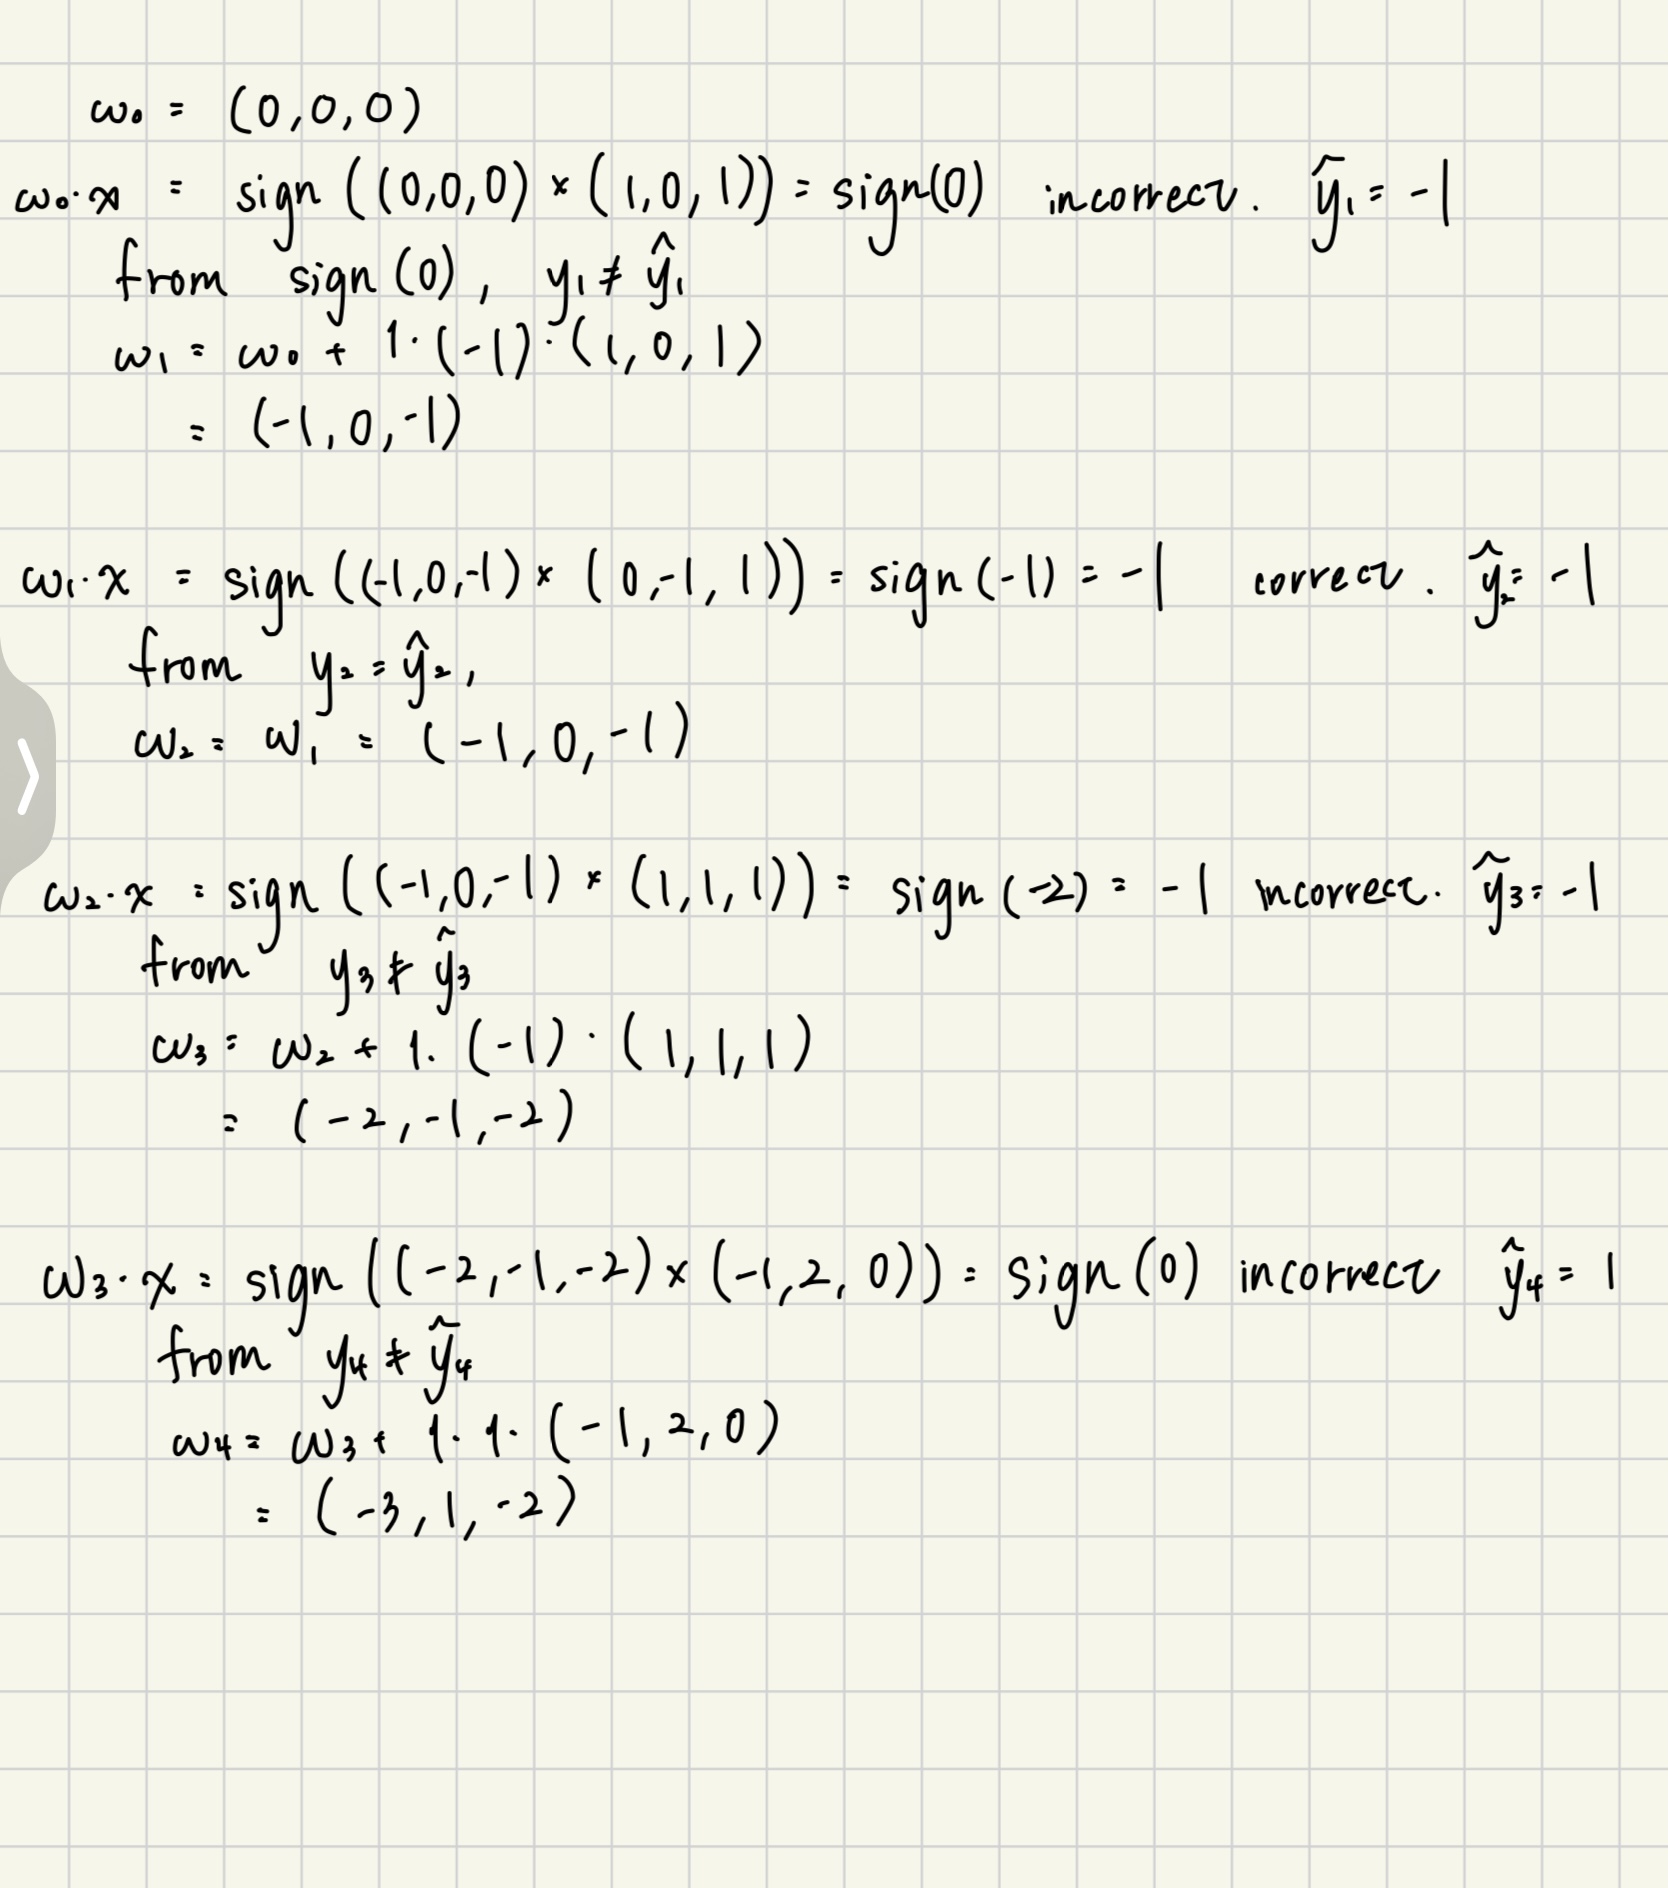 ω₀ = (0,0,0)
ω₀·x = sign((0,0,0)×(1,0,1)) = sign(0) incorrect. ŷ₁ = -1
from sign(0), y₁ ≠ ŷ₁
ω₁ = ω₀ + 1·(-1)·(1,0,1)
= (-1,0,-1)
ω₁·x = sign((-1,0,-1)×(0,-1,1)) = sign(-1) = -1 correct. ŷ₂ = -1
from y₂ = ŷ₂,
ω₂ = ω₁ = (-1,0,-1)
ω₂·x = sign((-1,0,-1)×(1,1,1)) = sign(-2) = -1 incorrect. ŷ₃ = -1
from y₃ ≠ ŷ₃
ω₃ = ω₂ + 1·(-1)·(1,1,1)
= (-2,-1,-2)
ω₃·x = sign((-2,-1,-2)×(-1,2,0)) = sign(0) incorrect ŷ₄ = 1
from y₄ ≠ ŷ₄
ω₄ = ω₃ + 1·1·(-1,2,0)
= (-3,1,-2)